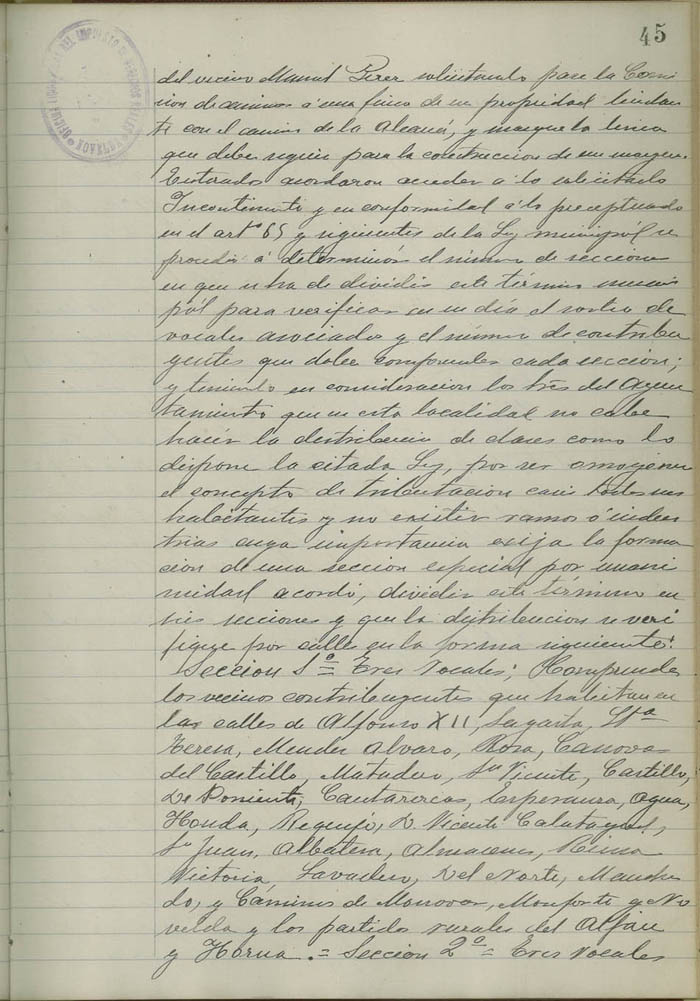 45
del vecino Manuel Perez solicitando pase la Comi
sion de caminos á una finca de su propiedad lindan
te con el camino de la Alcaná, y marque la linea
que debe seguir para la construccion de un margen.
Enterados acordaron acceder á lo solicitado
Incontinenti y en conformidad á lo preceptuado
en el artº 65 y siguientes de la Ley municipal se
procedió á determinar el número de secciones
en que se ha de dividir este término munici
pal para verificar en su día el sorteo de
vocales asociados y el número de contribu
yentes que deben comprender cada seccion;
y teniendo en consideracion los tres del Ayun
tamiento que en esta localidad no cabe
hacer la distribucion de clases como lo
dispone la citada Ley, por ser omogeneo
el concepto de tributacion casi todos sus
habitantes y no existir ramos ó indus
trias cuya importancia exija la forma
cion de una seccion especial por unani
midad acordó, dividir este término en
tres secciones y que la distribucion se veri
fique por calles en la forma siguiente:
Seccion 1º = Tres Vocales; Comprende
los vecinos contribuyentes que habitan en
las calles de Alfonso XII, Sagasta, Sta
Teresa, Mendez Alvaro, Rosa, Canovas
del Castillo, Matadero, Sn Vicente, Castillo,
De Poniente, Cantarerias, Esperanza, Agua,
Honda, Requejo, D. Vicente Calatayud,
Sn Juan, Albatera, Almacenes, Reina
Victoria, Lavadero, Del Norte, Mancha
do, y Cáminos de Monovar, Monforte y No
velda y los partidos rurales del Alfau
y Horna. = Seccion 2º = Tres Vocales